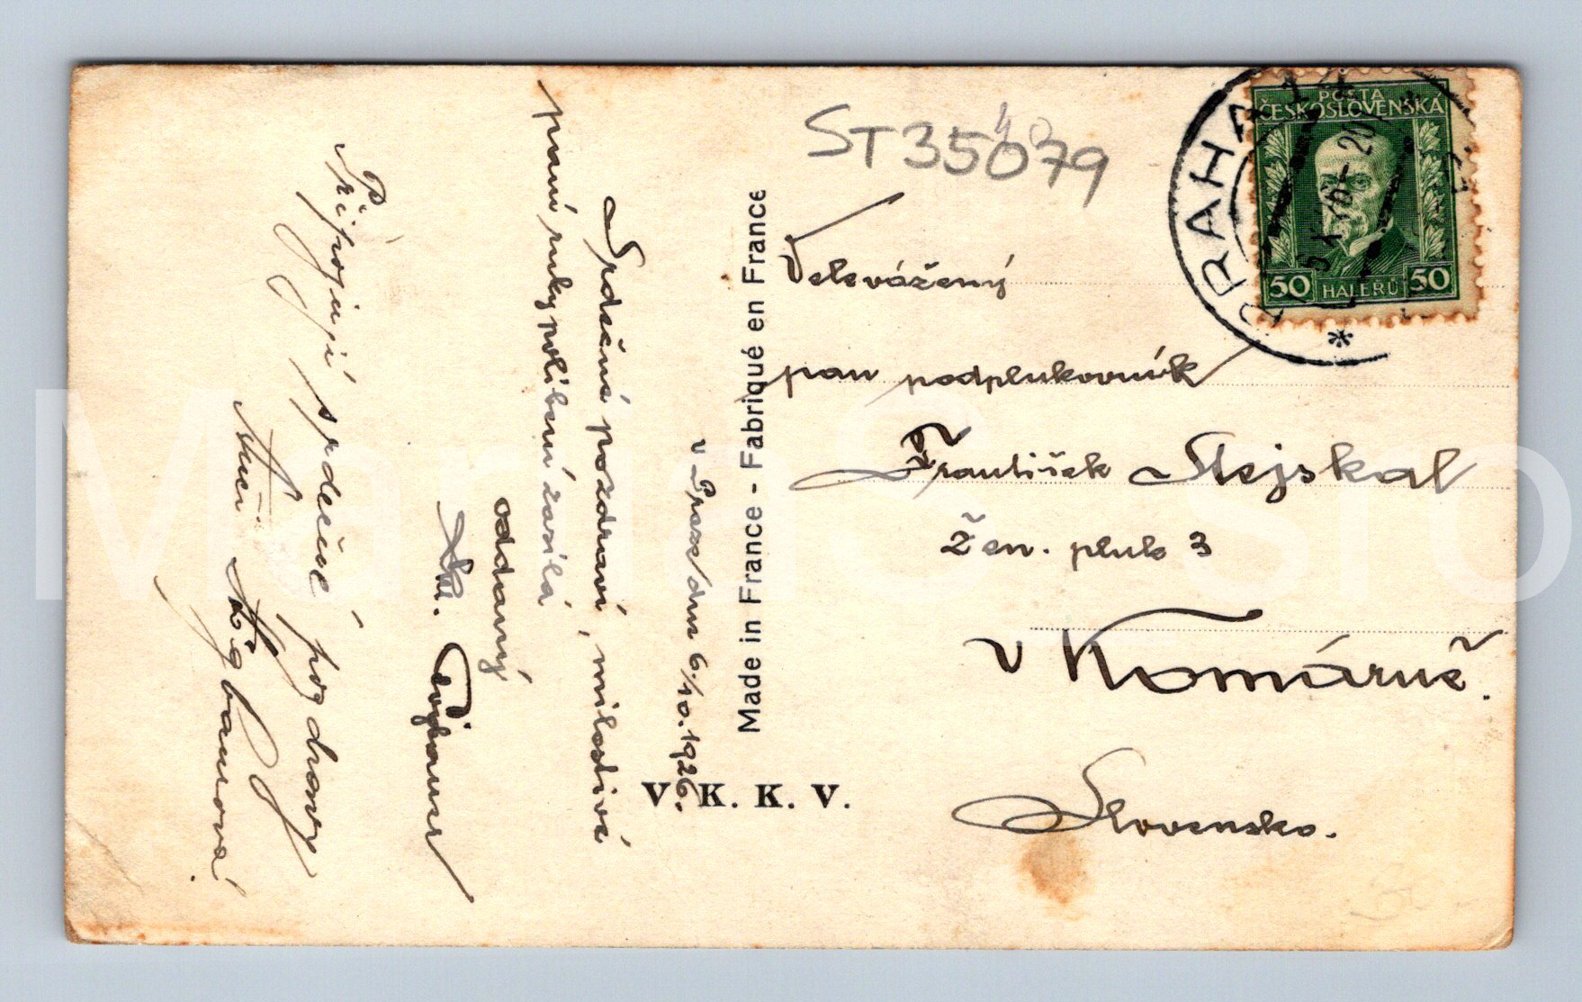 ST35079
40
POŠTA
ČESKOSLOVENSKÁ
50 HALÉŘŮ 50
PRAHA
*
Velevážený
pan podplukovník
František Stejskal
Žen. pluk 3
v Komárně.
Slovensko.
Made in France - Fabriqué en France
V. K. K. V.
v Praze, dne 6./10. 1926.
Srdečné pozdravy, milostivé
paní ruky políbení zasílá
oddaný
Připojuji srdečné pozdravy